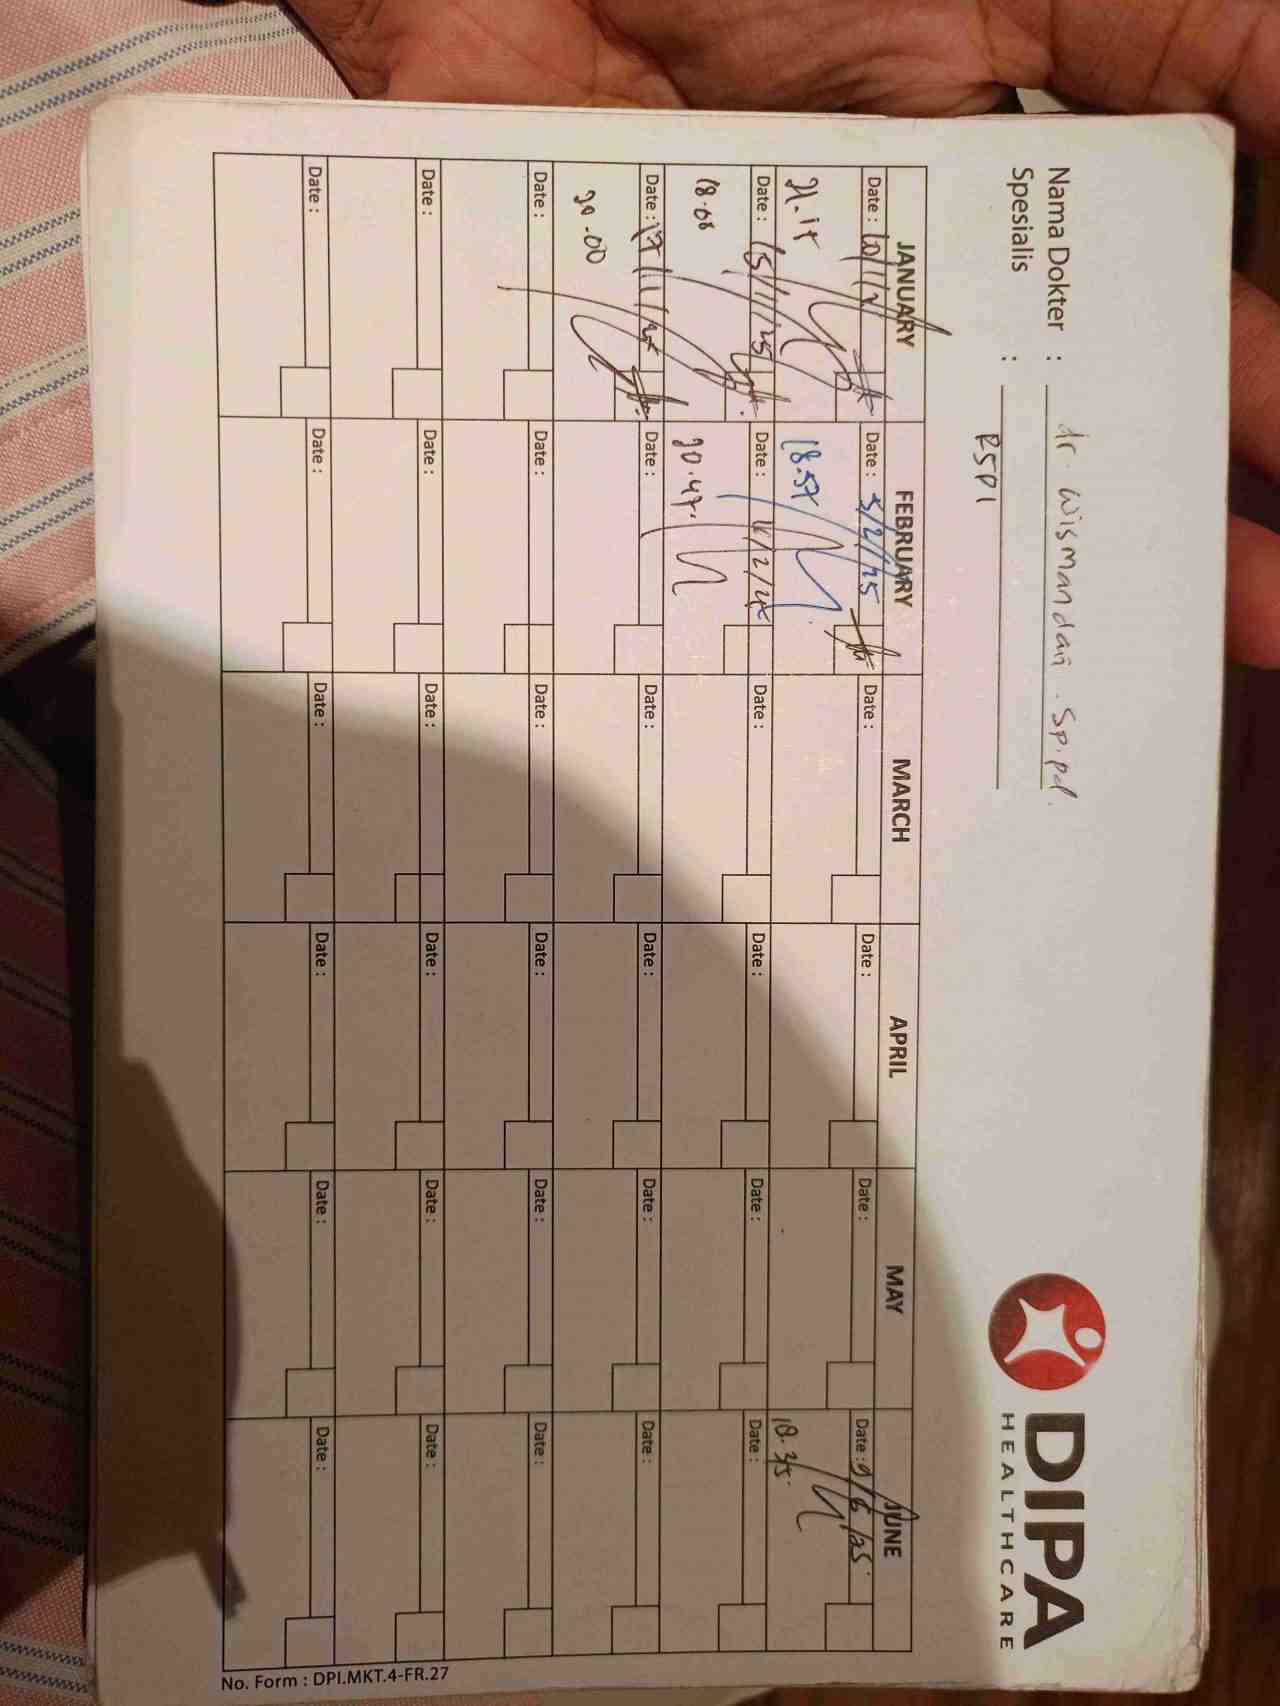 Nama Dokter : dr. Wismandari Sp.pd.
Spesialis : RSPI
DIPA
HEALTHCARE
JANUARY FEBRUARY MARCH APRIL MAY JUNE
Date : 10/1/ Date : 5/2/25 Date : Date : Date : Date : 9/6/25
18.57 18.35
Date : 15/1/25 Date : 11/2/25 Date : Date : Date : Date :
18.08 20.47
Date : 17/1/25 Date : Date : Date : Date : Date :
20.00
Date : Date : Date : Date : Date : Date :
Date : Date : Date : Date : Date : Date :
Date : Date : Date : Date : Date : Date :
No. Form : DPI.MKT.4-FR.27